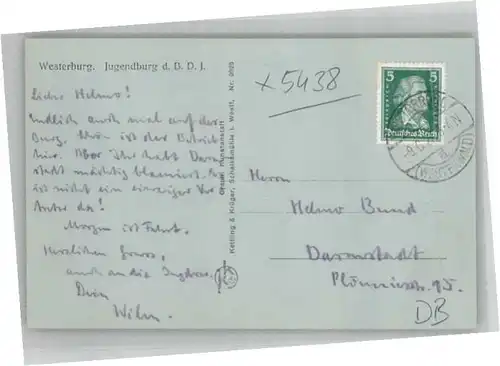 Westerburg. Jugendburg d. B. D. J.
Lieber Helmo!
Endlich auch mal auf der
Burg. Schön ist der Betrieb
hier. Aber Ihr habt Darm-
stadt mächtig blamiert. Es
ist nicht ein einziger
da!
Morgen ist Fahrt.
Herzlichen Gruss,
auch an die
Dein
Wilm.
Kettling & Krüger, Schalksmühle i. Westf. Nr. 9029
x 5438
5 5
Deutsches Reich
(WESTERWALD)
Herrn
Helmo Bund
Darmstadt
Plönniesstr. 95.
DB